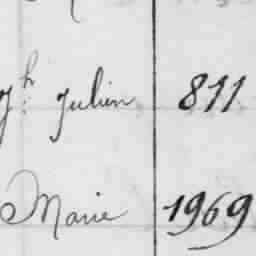 Jh: Julien 811
Marie 1969